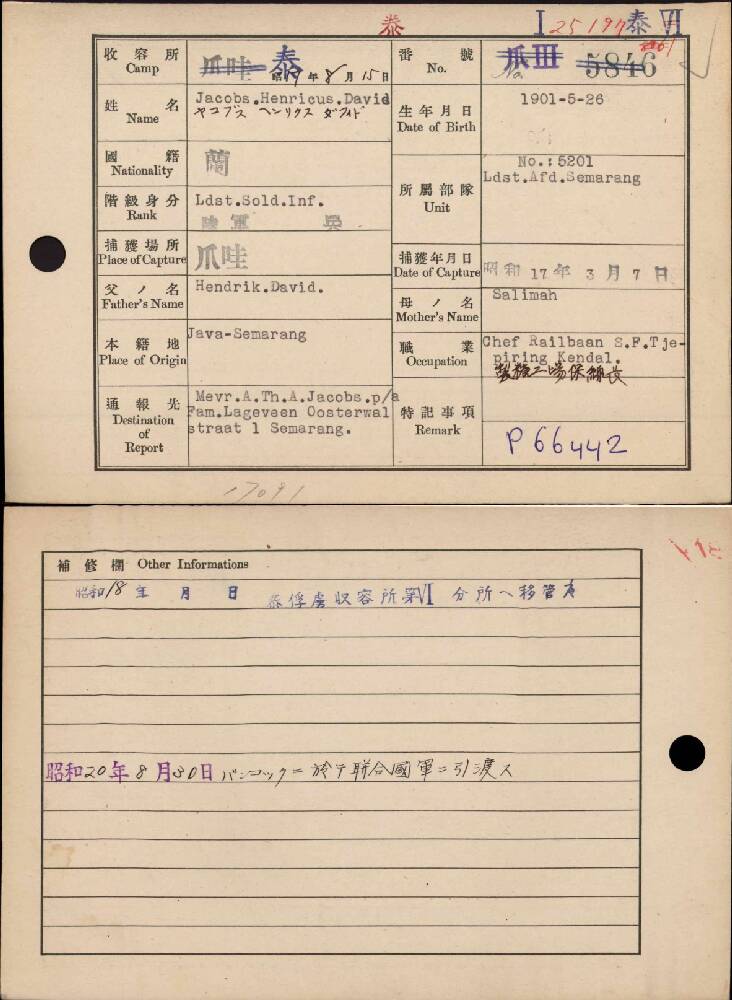 泰 I 25197 泰 VI
収容所 爪哇 泰 昭19年8月15日
Camp
番號 爪III 5846
No.
姓名 Jacobs.Henricus.David
Name ヤコブス ヘンリクス ダフイド
生年月日 1901-5-26
Date of Birth
國籍 蘭
Nationality
所屬部隊 No.:5201
Unit Ldst.Afd.Semarang
階級身分 Ldst.Sold.Inf.
Rank 陸軍 兵
捕獲場所 爪哇
Place of Capture
捕獲年月日 昭和17年3月7日
Date of Capture
父ノ名 Hendrik.David.
Father's Name
母ノ名 Salimah
Mother's Name
本籍地 Java-Semarang
Place of Origin
職業 Chef Railbaan S.F.Tje-
Occupation piring Kendal.
製糖工場保線長
通報先 Mevr.A.Th.A.Jacobs.p/a
Destination Fam.Lageveen Oosterwal
of straat 1 Semarang.
Report
特記事項 P66442
Remark
17091
補修欄 Other Informations
昭和18年 月 日 泰俘虜収容所第VI分所ヘ移管ス
昭和20年8月30日 バンコックニ於テ聯合國軍ニ引渡ス